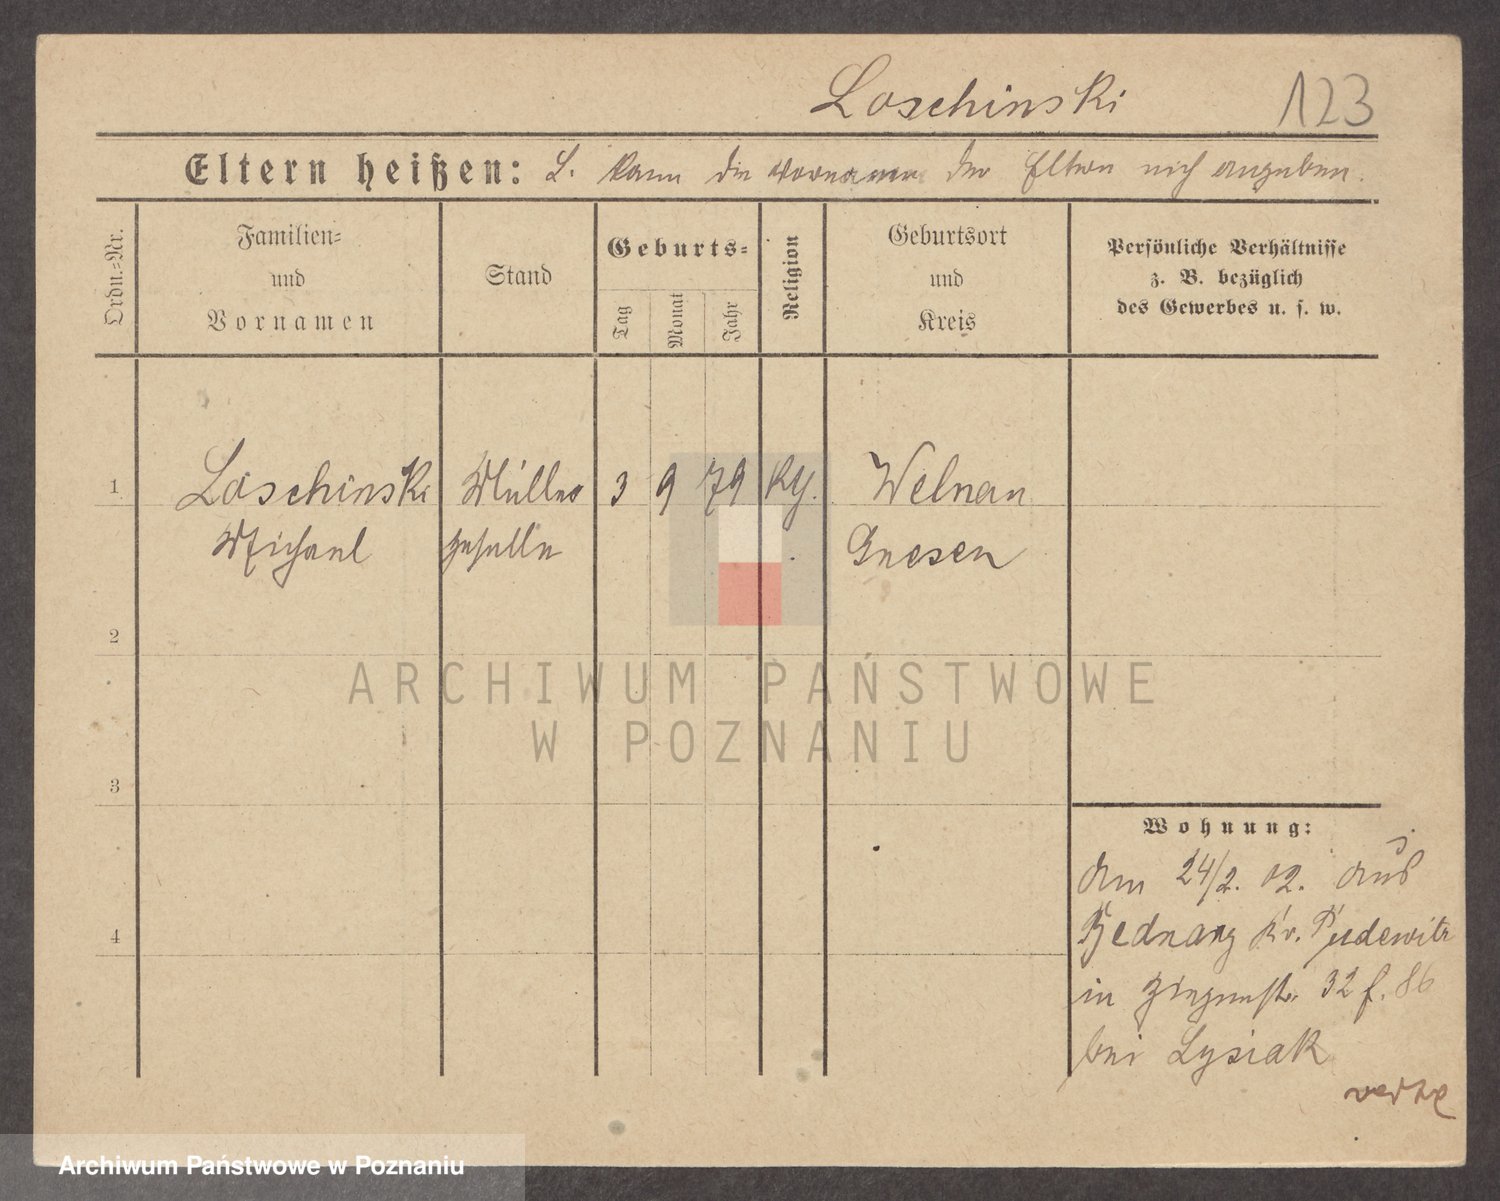 Loschinski 123
Eltern heißen: L. kann die Vornamen der Eltern nich angeben.
Ordn.=Nr.
Familien=
und
Vornamen
Stand
Geburts=
Tag
Monat
Jahr
Religion
Geburtsort
und
Kreis
Persönliche Verhältnisse
z. B. bezüglich
des Gewerbes u. s. w.
1 Loschinski Müller 3 9 79 Welnau
Michael geselle Gnesen
2
3
4
Wohnung:
Am 24/2. 02. aus
Bednary Kr. Pudewitz
in 32 f. 86
bei Lysiak
verte
ARCHIWUM PAŃSTWOWE
W POZNANIU
Archiwum Państwowe w Poznaniu